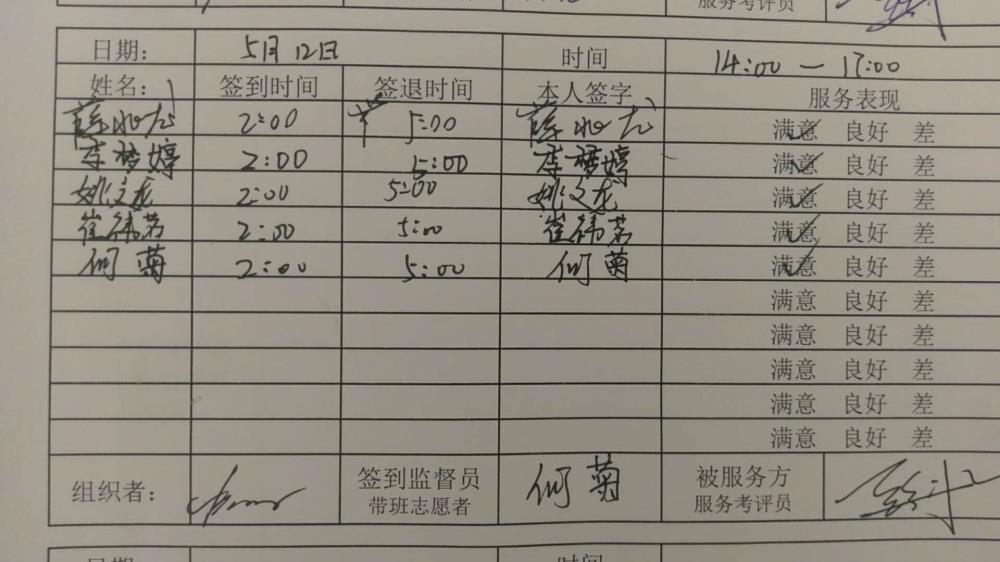 服务考评员
日期： 5月12日 时间 14:00 — 17:00
姓名： 签到时间 签退时间 本人签字 服务表现
2:00 5:00 满意 良好 差
李梦婷 2:00 5:00 李梦婷 满意 良好 差
姚文龙 2:00 5:00 姚文龙 满意 良好 差
崔祎茗 2:00 5:00 崔祎茗 满意 良好 差
何菊 2:00 5:00 何菊 满意 良好 差
满意 良好 差
满意 良好 差
满意 良好 差
满意 良好 差
满意 良好 差
组织者： 签到监督员 何菊 被服务方
带班志愿者 服务考评员